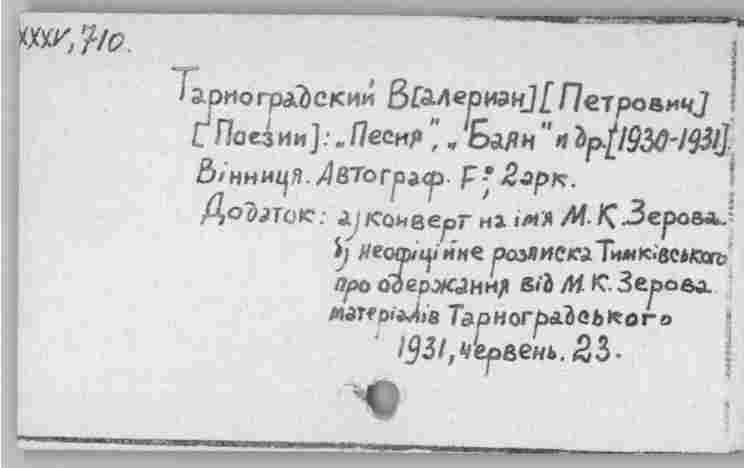 XXXV, 710.
Тарноградский В[алериан] [Петрович]
[Поезии]: „Песня", „Баян" и др. [1930-1931].
Вінниця. Автограф. F°; 2 арк.
Додаток: а) конверт на ім'я М.К. Зерова.
б) неофіційне розписка Тимківського
про одержання від М.К. Зерова
матеріалів Тарноградського
1931, червень. 23.